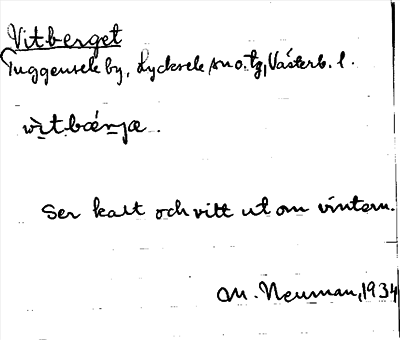 Vitberget
Tuggensele by, Lycksele sn o. tg, Västerb. l.
vìtbærjæ.
Ser kalt och vitt ut om vintern.
M. Neuman, 1934